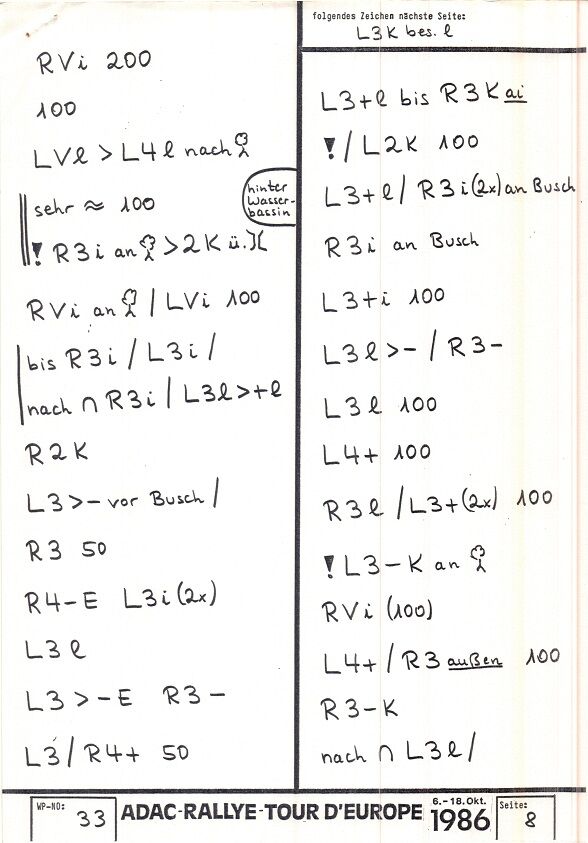 RVi 200
100
LVl > L4l nach
sehr ≈ 100
hinter
Wasser-
bassin
! R3i an > 2K ü. )(
RVi an / LVi 100
bis R3i / L3i /
nach ∩ R3i / L3l > +l
R2K
L3 > – vor Busch /
R3 50
R4–E L3i (2x)
L3l
L3 > –E R3–
L3 / R4+ 50
folgendes Zeichen nächste Seite:
L3K bes. l
L3+l bis R3K ai
! / L2K 100
L3+l / R3i (2x) an Busch
R3i an Busch
L3+i 100
L3l > – / R3–
L3l 100
L4+ 100
R3l / L3+ (2x) 100
! L3–K an
RVi (100)
L4+ / R3 außen 100
R3–K
nach ∩ L3l /
WP-NO: 33
ADAC-RALLYE-TOUR D'EUROPE
6.–18. Okt.
1986
Seite: 8